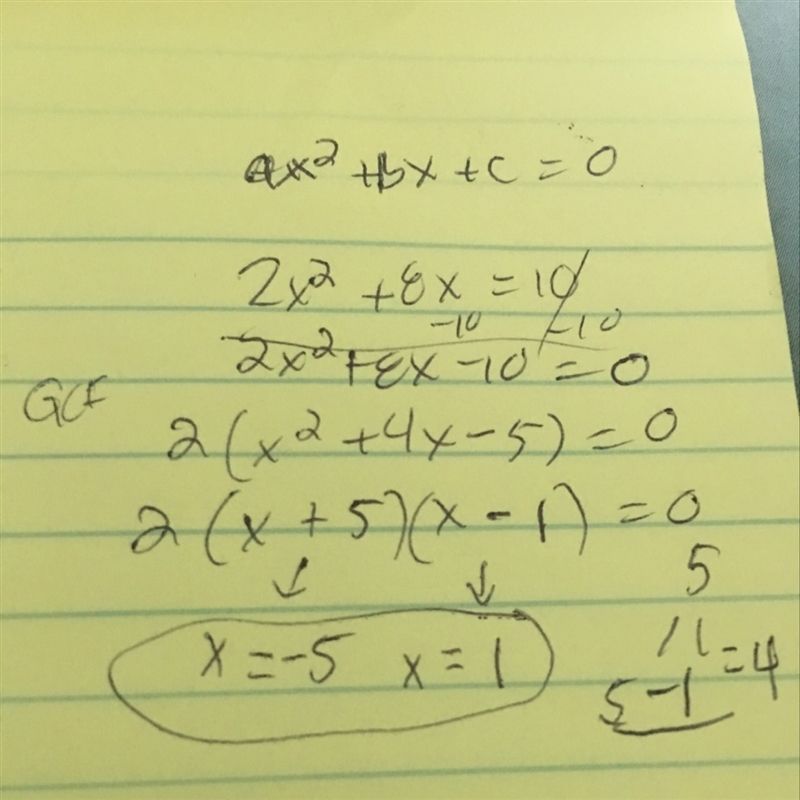 ax² + bx + c = 0
2x² + 8x = 10
-10 -10
2x² + 8x - 10 = 0
GCF
2(x² + 4x - 5) = 0
2(x + 5)(x - 1) = 0
x = -5 x = 1
5
5 - 1 = 4